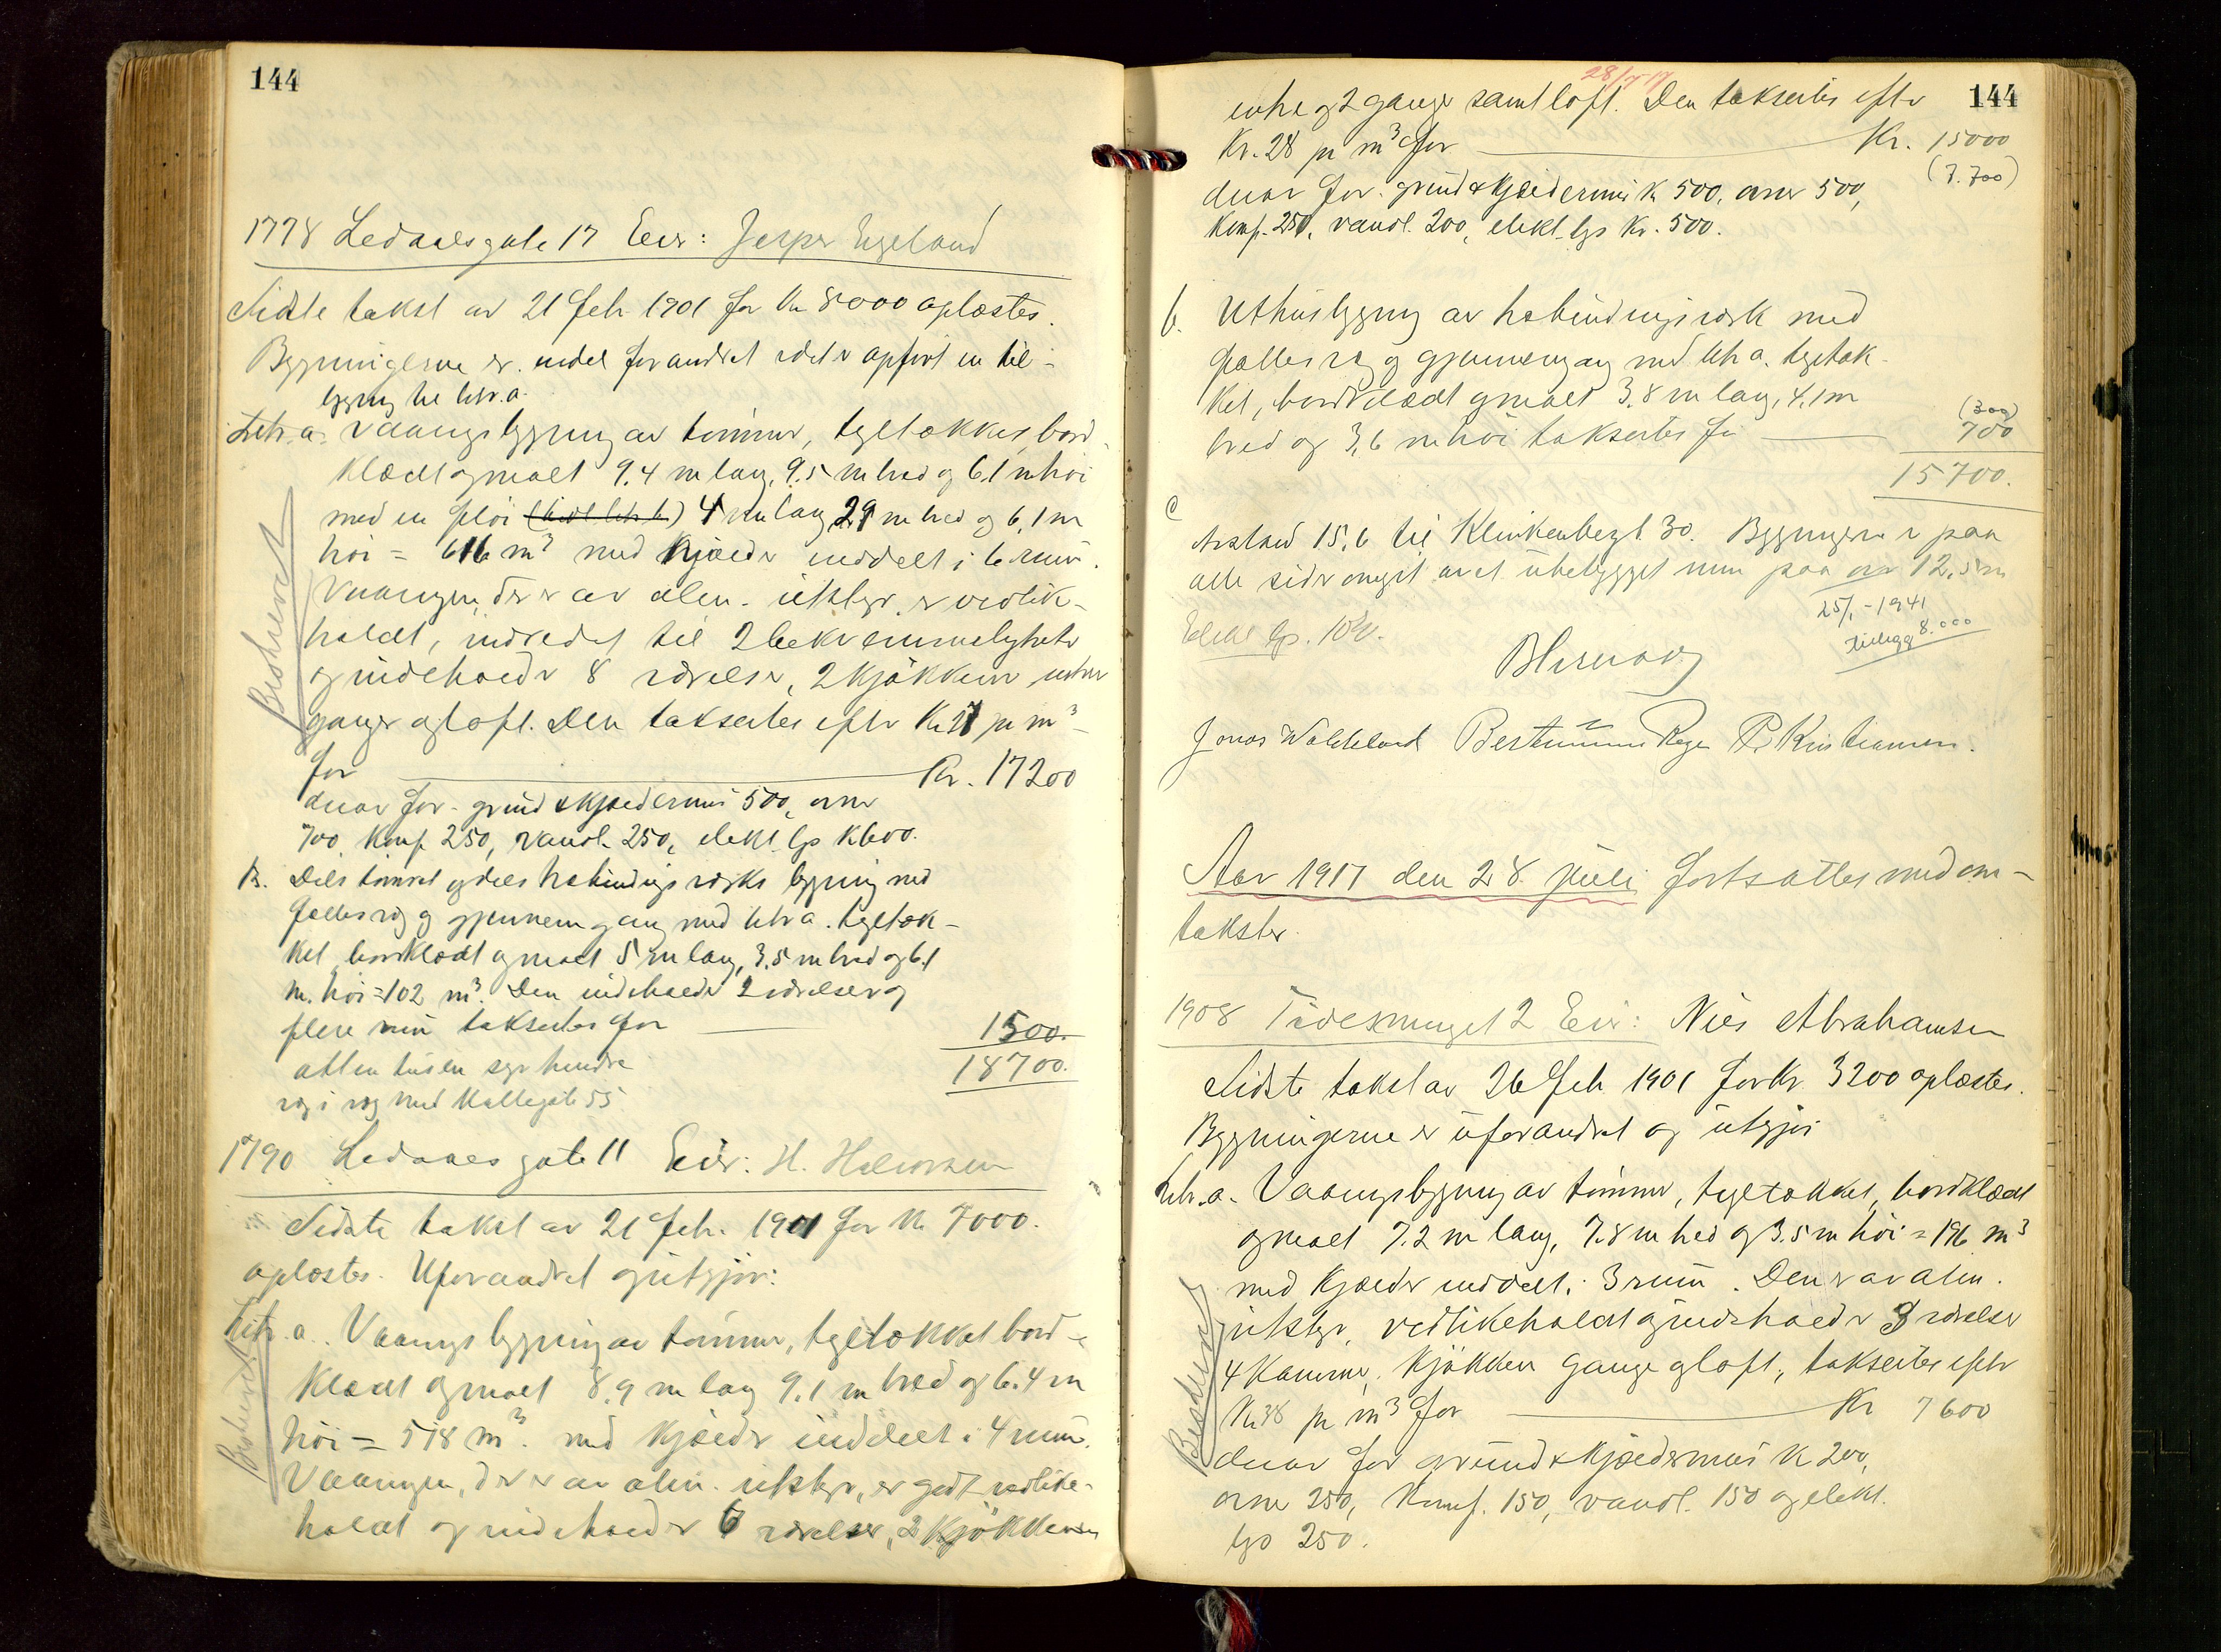 144
1778 Ledaalsgate 17 Eier: Jesper Egeland
Sidste takst av 21 Feb 1901 for Kr 8000 oplæstes.
Bygningerne er endel forandret idet er opført en til-
bygning til litr. a.
Litr. a. Vaaningsbygning av tømmer, tegltækket, bord-
klædt og malt 9.4 m lang, 9.5 m bred og 6.1 m høi
med en fløi (indl litr b) 4 m lang 2.9 m bred og 6,1 m
høi = 616 m³ med kjælder inddelt i 6 rum.
Vaaningen, der er av alm. utstyr, er vedlike-
holdt, indredet til 2 bekvemmeligheter
og indeholder 8 værelser, 2 kjøkkener, entre
ganger og loft. Den takseres efter Kr 27 pr m³
for Kr. 17200
derav for grund & kjeldermur 500, ovner
700, komf 250, vandl. 250, elekt. lys K 600.
B. Dels tømret og dels utbindingsverks bygning med
fælles væg og gjennemgang med litr a. tegltæk-
ket, bordklædt og malt 5 m lang, 3.5 m bred og 6.1
m. høi = 102 m³. Den indeholder 2 værelser og
flere rum takseres for 1500.
atten tusen syv hundre 18700.
væg i væg med Kallegate 55
1790 Ledaalsgate 11 Eier: H. Halvorsen
Sidste takst av 21 Feb. 1901 for Kr 7000.
oplæstes. Uforandret og utgjør:
Litr. a. Vaaningsbygning av tømmer, tegltækket bord-
klædt og malt 8.9 m lang 9.1 m bred og 6.4 m
høi = 518 m³. med kjælder inddelt i 4 rum.
Vaaningen, der er av alm. utstyr, er godt vedlike-
holdt og indeholder 6 værelser, 2 kjøkkener
144
28/7-17
entre og 2 ganger samt loft. Den takseres efter
Kr. 28 pr m³ for Kr. 15000
(7.700)
derav for grund & kjeldermur K 500, ovner 500,
Komf. 250, vandl. 200, elekt. lys Kr. 500.
b. Uthusbygning av utbindingsverk med
fælles væg og gjennemgang med litr a. tegltæk-
ket, bordklædt og malt 3.8 m lang, 4.1 m
bred og 3,6 m høi takseres for 700
(300)
15700.
Avstand 15.6 til Klinkenbergt 30. Bygningerne er paa
alle sider omgit av et ubebygget rum paa over 12,5 m
25/1-1941
Tillegg 8.000
Elekt lys. 10%.
Jonas Waldeland P. Kristiansen.
Aar 1917 den 28 juli fortsattes med om-
takster.
1908 Tidemsmuget 2 Eier: Nils Abrahamsen
Sidste takst av 26 Feb 1901 for Kr. 3200 oplæstes.
Bygningerne er uforandret og utgjør
Litr. a. Vaaningsbygning av tømmer, tegltækket, bordklædt
og malt 7.2 m lang, 7.8 m bred og 3.5 m høi = 196 m³
med kjælder inddelt i 3 rum. Den er av alm.
utstyr, vedlikeholdt og indeholder 3 værelser
4 kammer, kjøkken gange og loft, takseres efter
Kr 38 pr m³ for Kr 7600
derav for grund & kjeldermur K 200,
ovne 250, komf. 150, vandl. 150 og elekt.
lys 250.